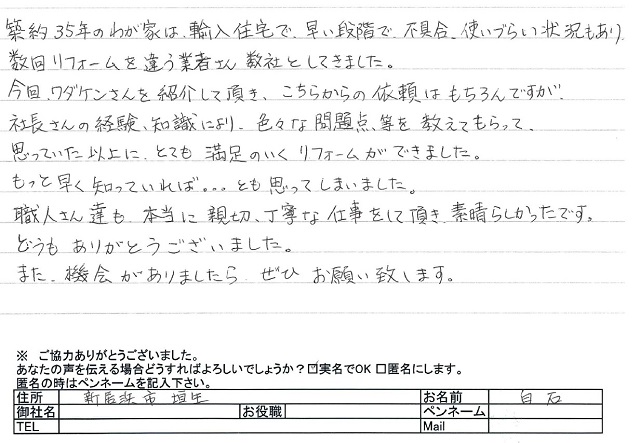 築約35年のわが家は、輸入住宅で、早い段階で、不具合、使いづらい状況もあり
数回リフォームを違う業者さん数社としてきました。
今回、ワダケンさんを紹介して頂き、こちらからの依頼はもちろんですが、
社長さんの経験、知識により、色々な問題点、等を教えてもらって、
思っていた以上に、とても満足のいくリフォームができました。
もっと早く知っていれば...とも思ってしまいました。
職人さん達も、本当に親切、丁寧な仕事をして頂き、素晴らしかったです。
どうもありがとうございました。
また、機会がありましたら、ぜひお願い致します。
※ ご協力ありがとうございました。
あなたの声を伝える場合どうすればよろしいでしょうか？☑実名でOK □匿名にします。
匿名の時はペンネームを記入下さい。
住所 新居浜市垣生 お名前 白石
御社名 お役職 ペンネーム
TEL Mail